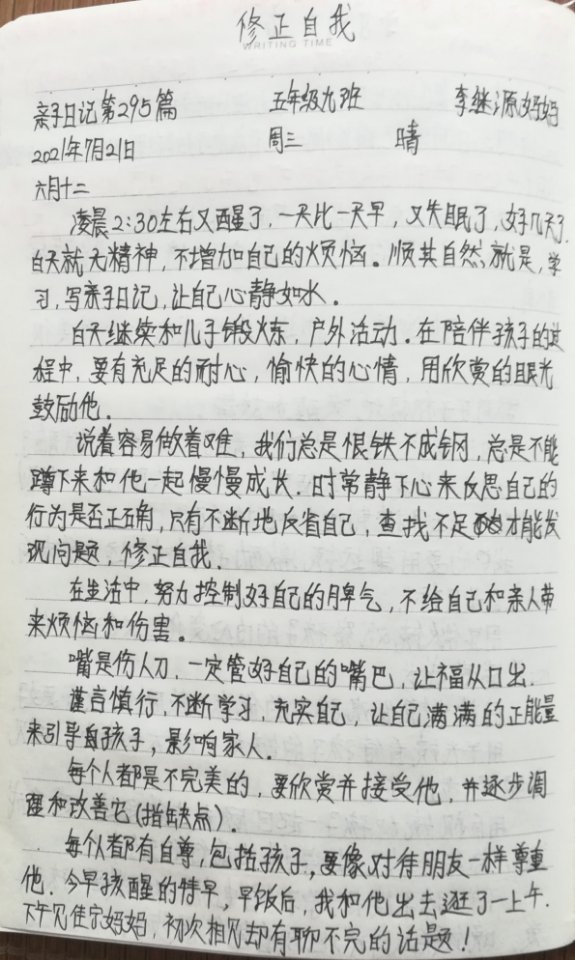 修正自我
WRITING TIME
亲子日记第295篇 五年级九班 李继源妈妈
2021年7月21日 周三 晴
六月十二
凌晨2:30左右又醒了,一天比一天早,又失眠了,好几天了,
白天就无精神,不增加自己的烦恼。顺其自然,就是,学
习,写亲子日记,让自己心静如水.
白天继续和儿子锻炼,户外活动.在陪伴孩子的过
程中,要有充足的耐心,愉快的心情,用欣赏的眼光
鼓励他.
说着容易做着难,我们总是恨铁不成钢,总是不能
蹲下来和他一起慢慢成长.时常静下心来反思自己的
行为是否正确,只有不断地反省自己,查找不足才能发
现问题,修正自我.
在生活中,努力控制好自己的脾气,不给自己和亲人带
来烦恼和伤害。
嘴是伤人刀,一定管好自己的嘴巴,让福从口出.
谨言慎行,不断学习,充实自己,让自己满满的正能量
来引导孩子,影响家人.
每个人都是不完美的,要欣赏并接受他,并逐步调
理和改善它(指出缺点).
每个人都有自尊,包括孩子,要像对待朋友一样尊重
他.今早孩醒的特早,早饭后,我和他出去逛了一上午.
下午见佳宁妈妈,初次相见却有聊不完的话题!